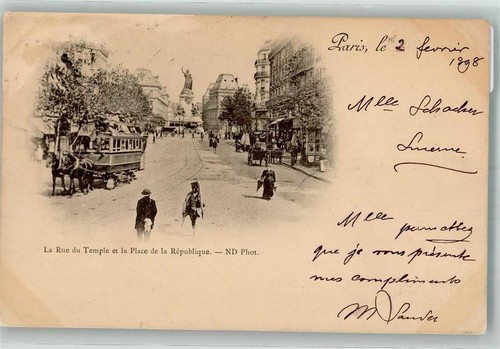 Paris, le 2 fevrier
1898
Mlle Schocher
Lucerne
Mlle permettez
que je vous présente
mes compliments
La Rue du Temple et la Place de la République. — ND Phot.